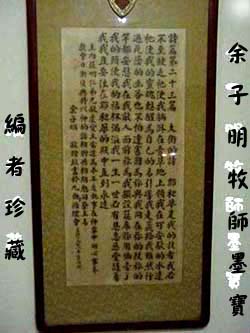 余子明牧師墨寶
詩篇第二十三篇 大衛的詩 耶和華是我的牧者我必
不至缺乏他使我躺臥在青草地上領我在可安歇的水邊
他使我的靈魂甦醒為自己的名引導我走義路我雖然行
過死蔭的幽谷也不怕遭害因為你與我同在你的杖你的
竿都安慰我在我敵人面前你為我擺設筵席你用油膏了
我的頭使我的福杯滿溢我一生一世必有恩惠慈愛隨着
我我且要住在耶和華的殿中直到永遠
編者珍藏